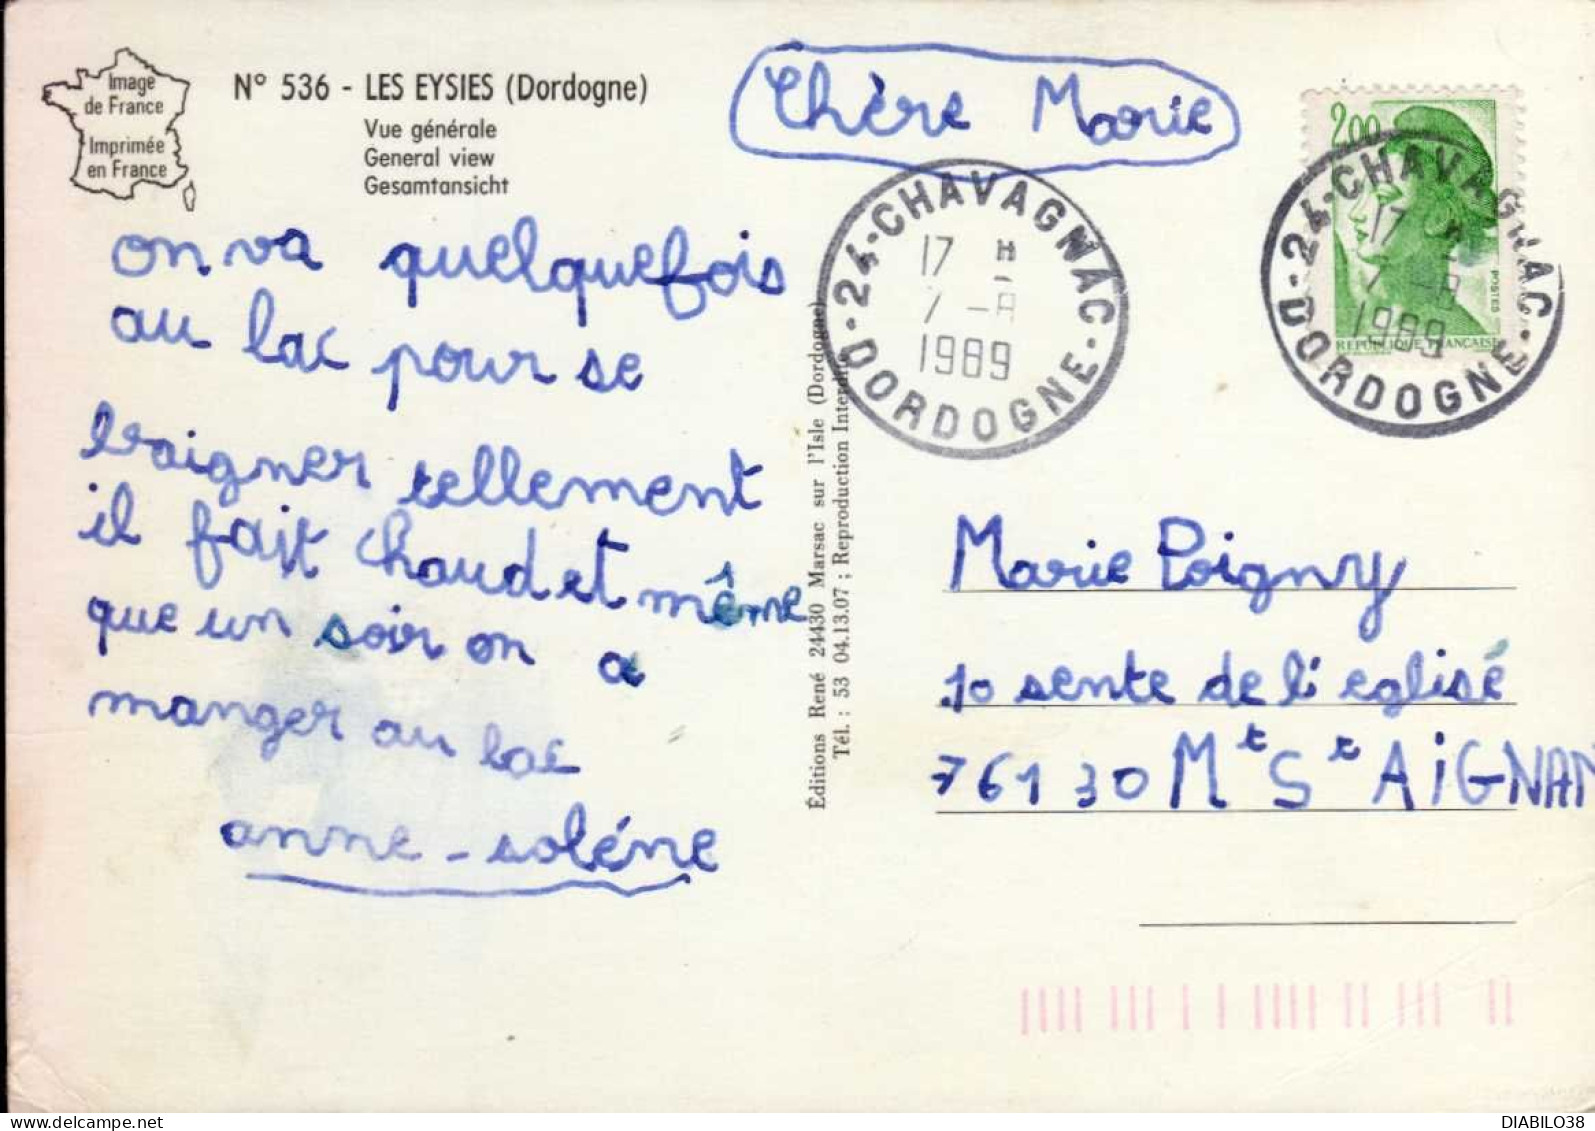 Image
de France
Imprimée
en France
N° 536 - LES EYSIES (Dordogne)
Vue générale
General view
Gesamtansicht
Chère Marie
on va quelquefois
au lac pour se
baigner tellement
il fait chaud et même
que un soir on a
manger au lac
anne - soléne
Éditions René 24430 Marsac sur l'Isle (Dordogne)
Tél. : 53 04.13.07 ; Reproduction Interdite
24 - CHAVAGNAC - DORDOGNE -
17 H
7 - 8
1989
2,00
POSTES
REPUBLIQUE FRANCAISE
24 - CHAVAGNAC - DORDOGNE -
17 H
7 - 8
1989
Marie Poigny
10 sente de l'eglisé
76130 Mt St AiGNAN
DIABILO38